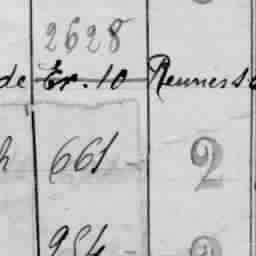 2628
de Er. 10 Reuniess
h 661 - 2
954 - 2